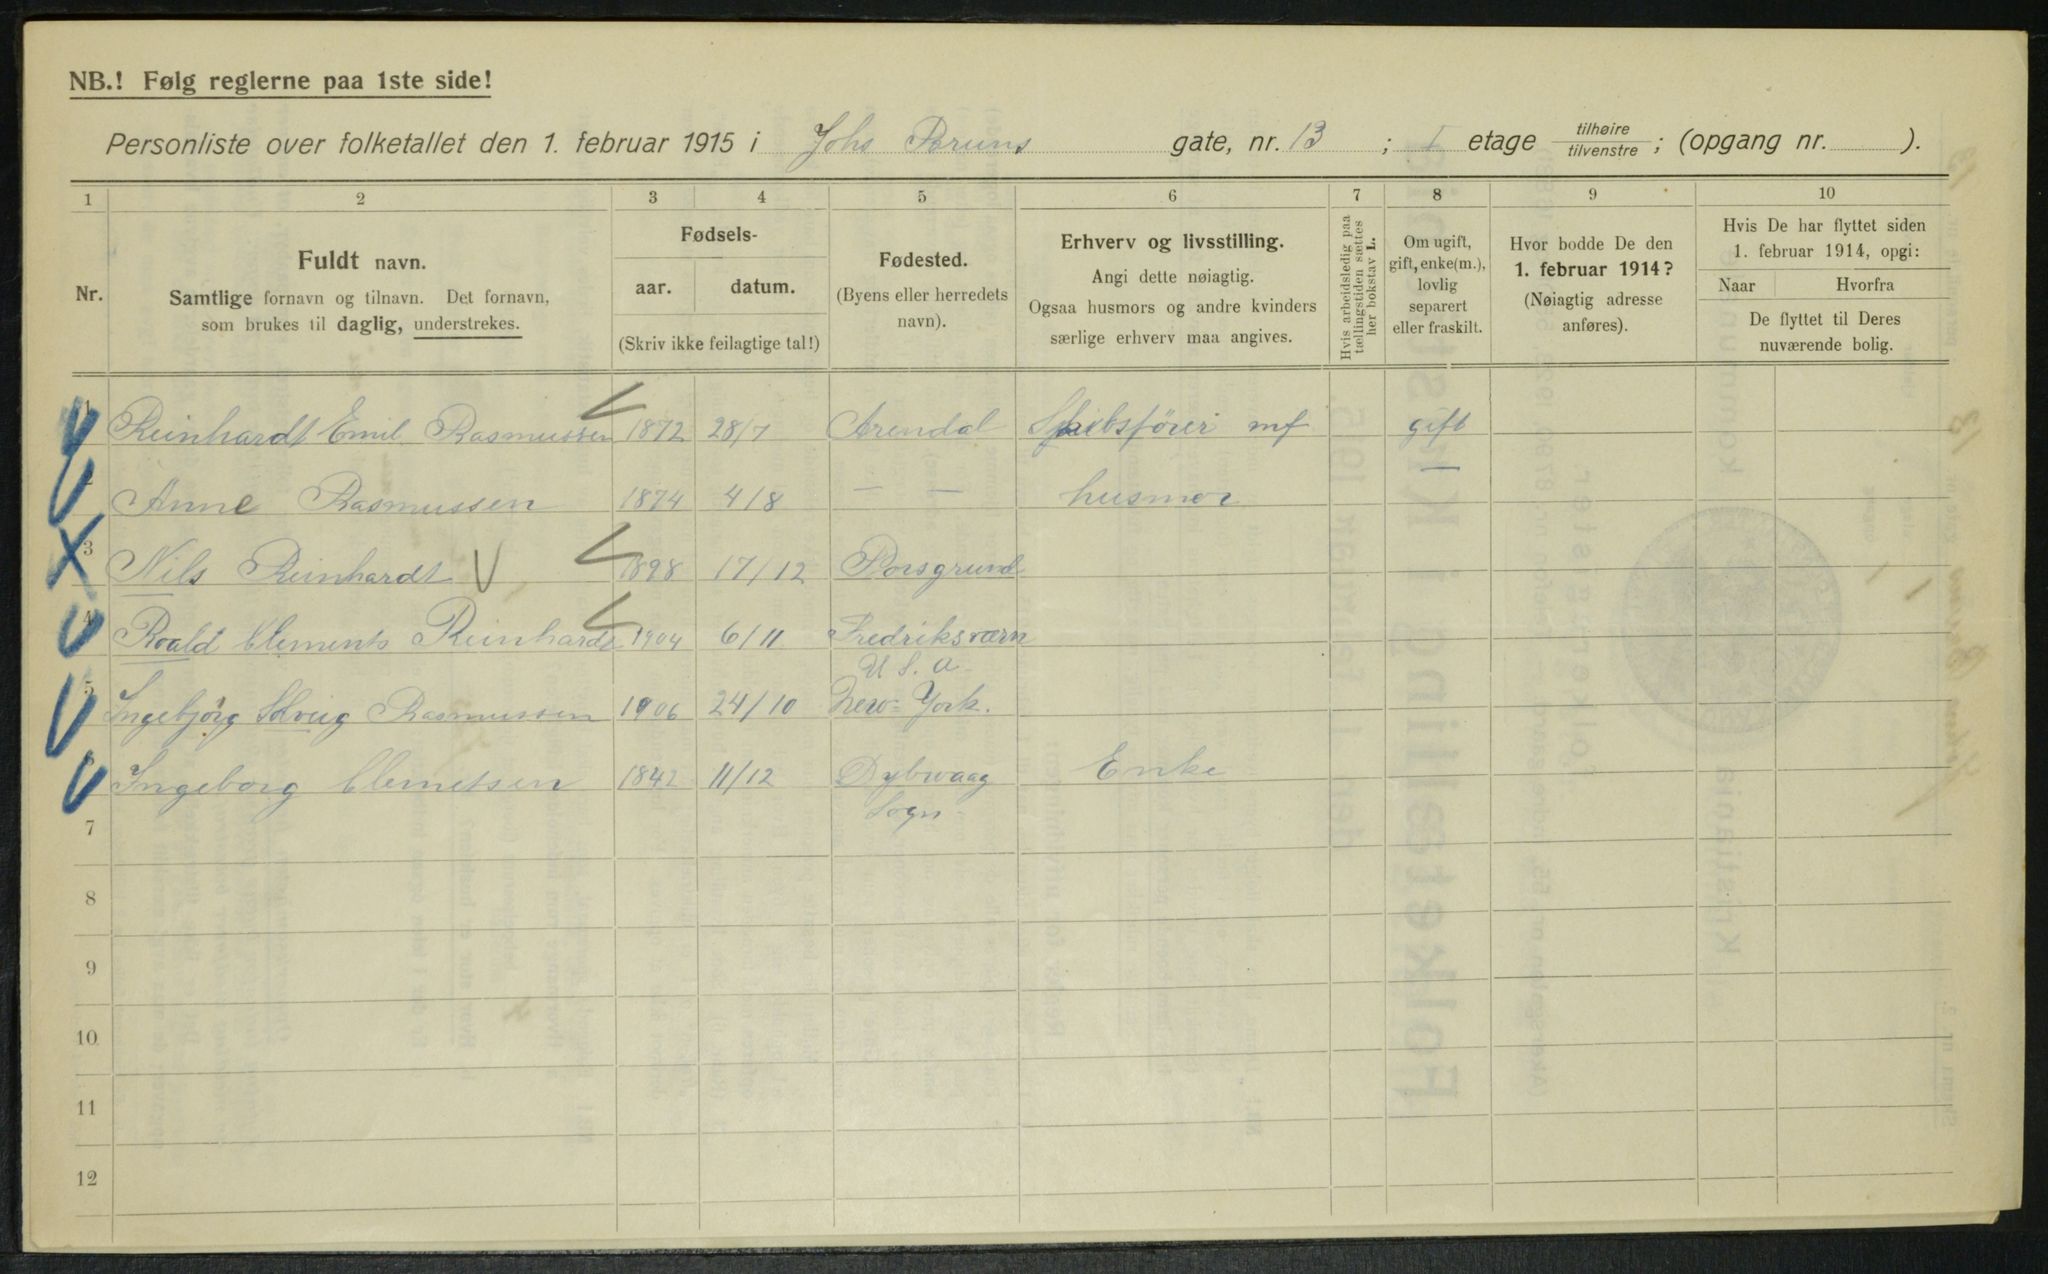 NB.! Følg reglerne paa 1ste side!
Personliste over folketallet den 1. februar 1915 i Johs Bruns gate, nr. 13 ; I etage tilhøire tilvenstre ; (opgang nr. ).
1 2 3 4 5 6 7 8 9 10
Nr.
Fuldt navn.
Samtlige fornavn og tilnavn. Det fornavn,
som brukes til daglig, understrekes.
Fødsels-
aar. datum.
(Skriv ikke feilagtige tal!)
Fødested.
(Byens eller herredets
navn).
Erhverv og livsstilling.
Angi dette nøiagtig.
Ogsaa husmors og andre kvinders
særlige erhverv maa angives.
Hvis arbeidsledig paa
tællingstiden sættes
her bokstav L.
Om ugift,
gift, enke(m.),
lovlig
separert
eller fraskilt.
Hvor bodde De den
1. februar 1914?
(Nøiagtig adresse
anføres).
Hvis De har flyttet siden
1. februar 1914, opgi:
Naar Hvorfra
De flyttet til Deres
nuværende bolig.
1 Reinhardt Emil Rasmussen 1872 28/7 Arendal Skibsfører mf gift
2 Anne Rasmussen 1874 4/8 — — husmor —
3 Nils Reinhardt 1898 17/12 Porsgrund
4 Roald Clements Reinhardt 1904 6/11 Fredriksværn
U. S. A.
5 Ingebjørg Solveig Rasmussen 1906 24/10 New-York.
6 Ingeborg Clemetsen 1842 11/12 Dybwaag Enke
Sogn
7
8
9
10
11
12